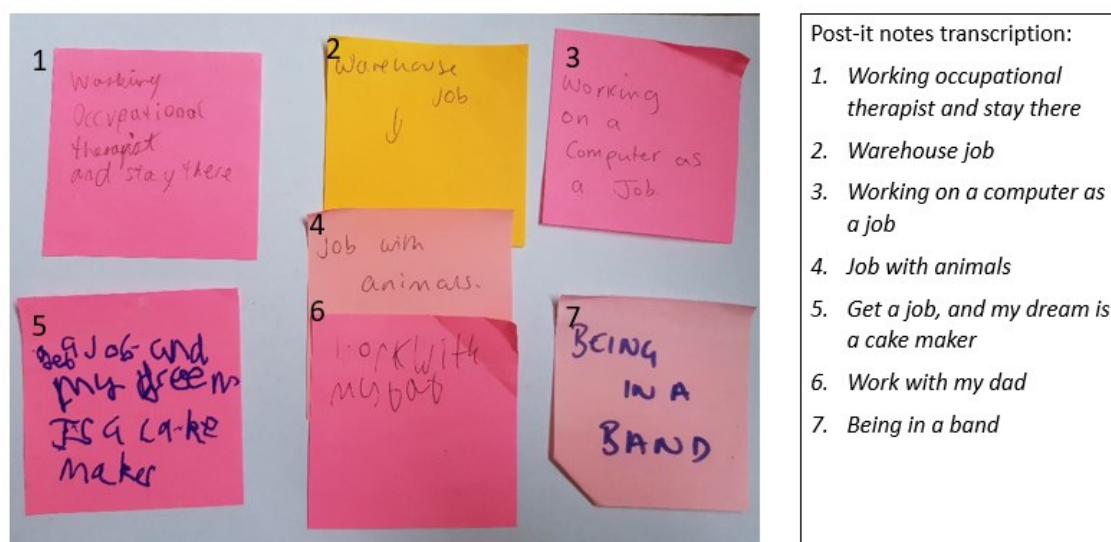 1
Working
Occupational
therapist
and stay there
2
Warehouse
Job
3
Working
on a
Computer as
a Job
4
Job with
animals.
5
Get a Job and
my dreem
IS a cake
maker
6
work with
my dad
7
BEING
IN A
BAND
Post-it notes transcription:
1. Working occupational
therapist and stay there
2. Warehouse job
3. Working on a computer as
a job
4. Job with animals
5. Get a job, and my dream is
a cake maker
6. Work with my dad
7. Being in a band